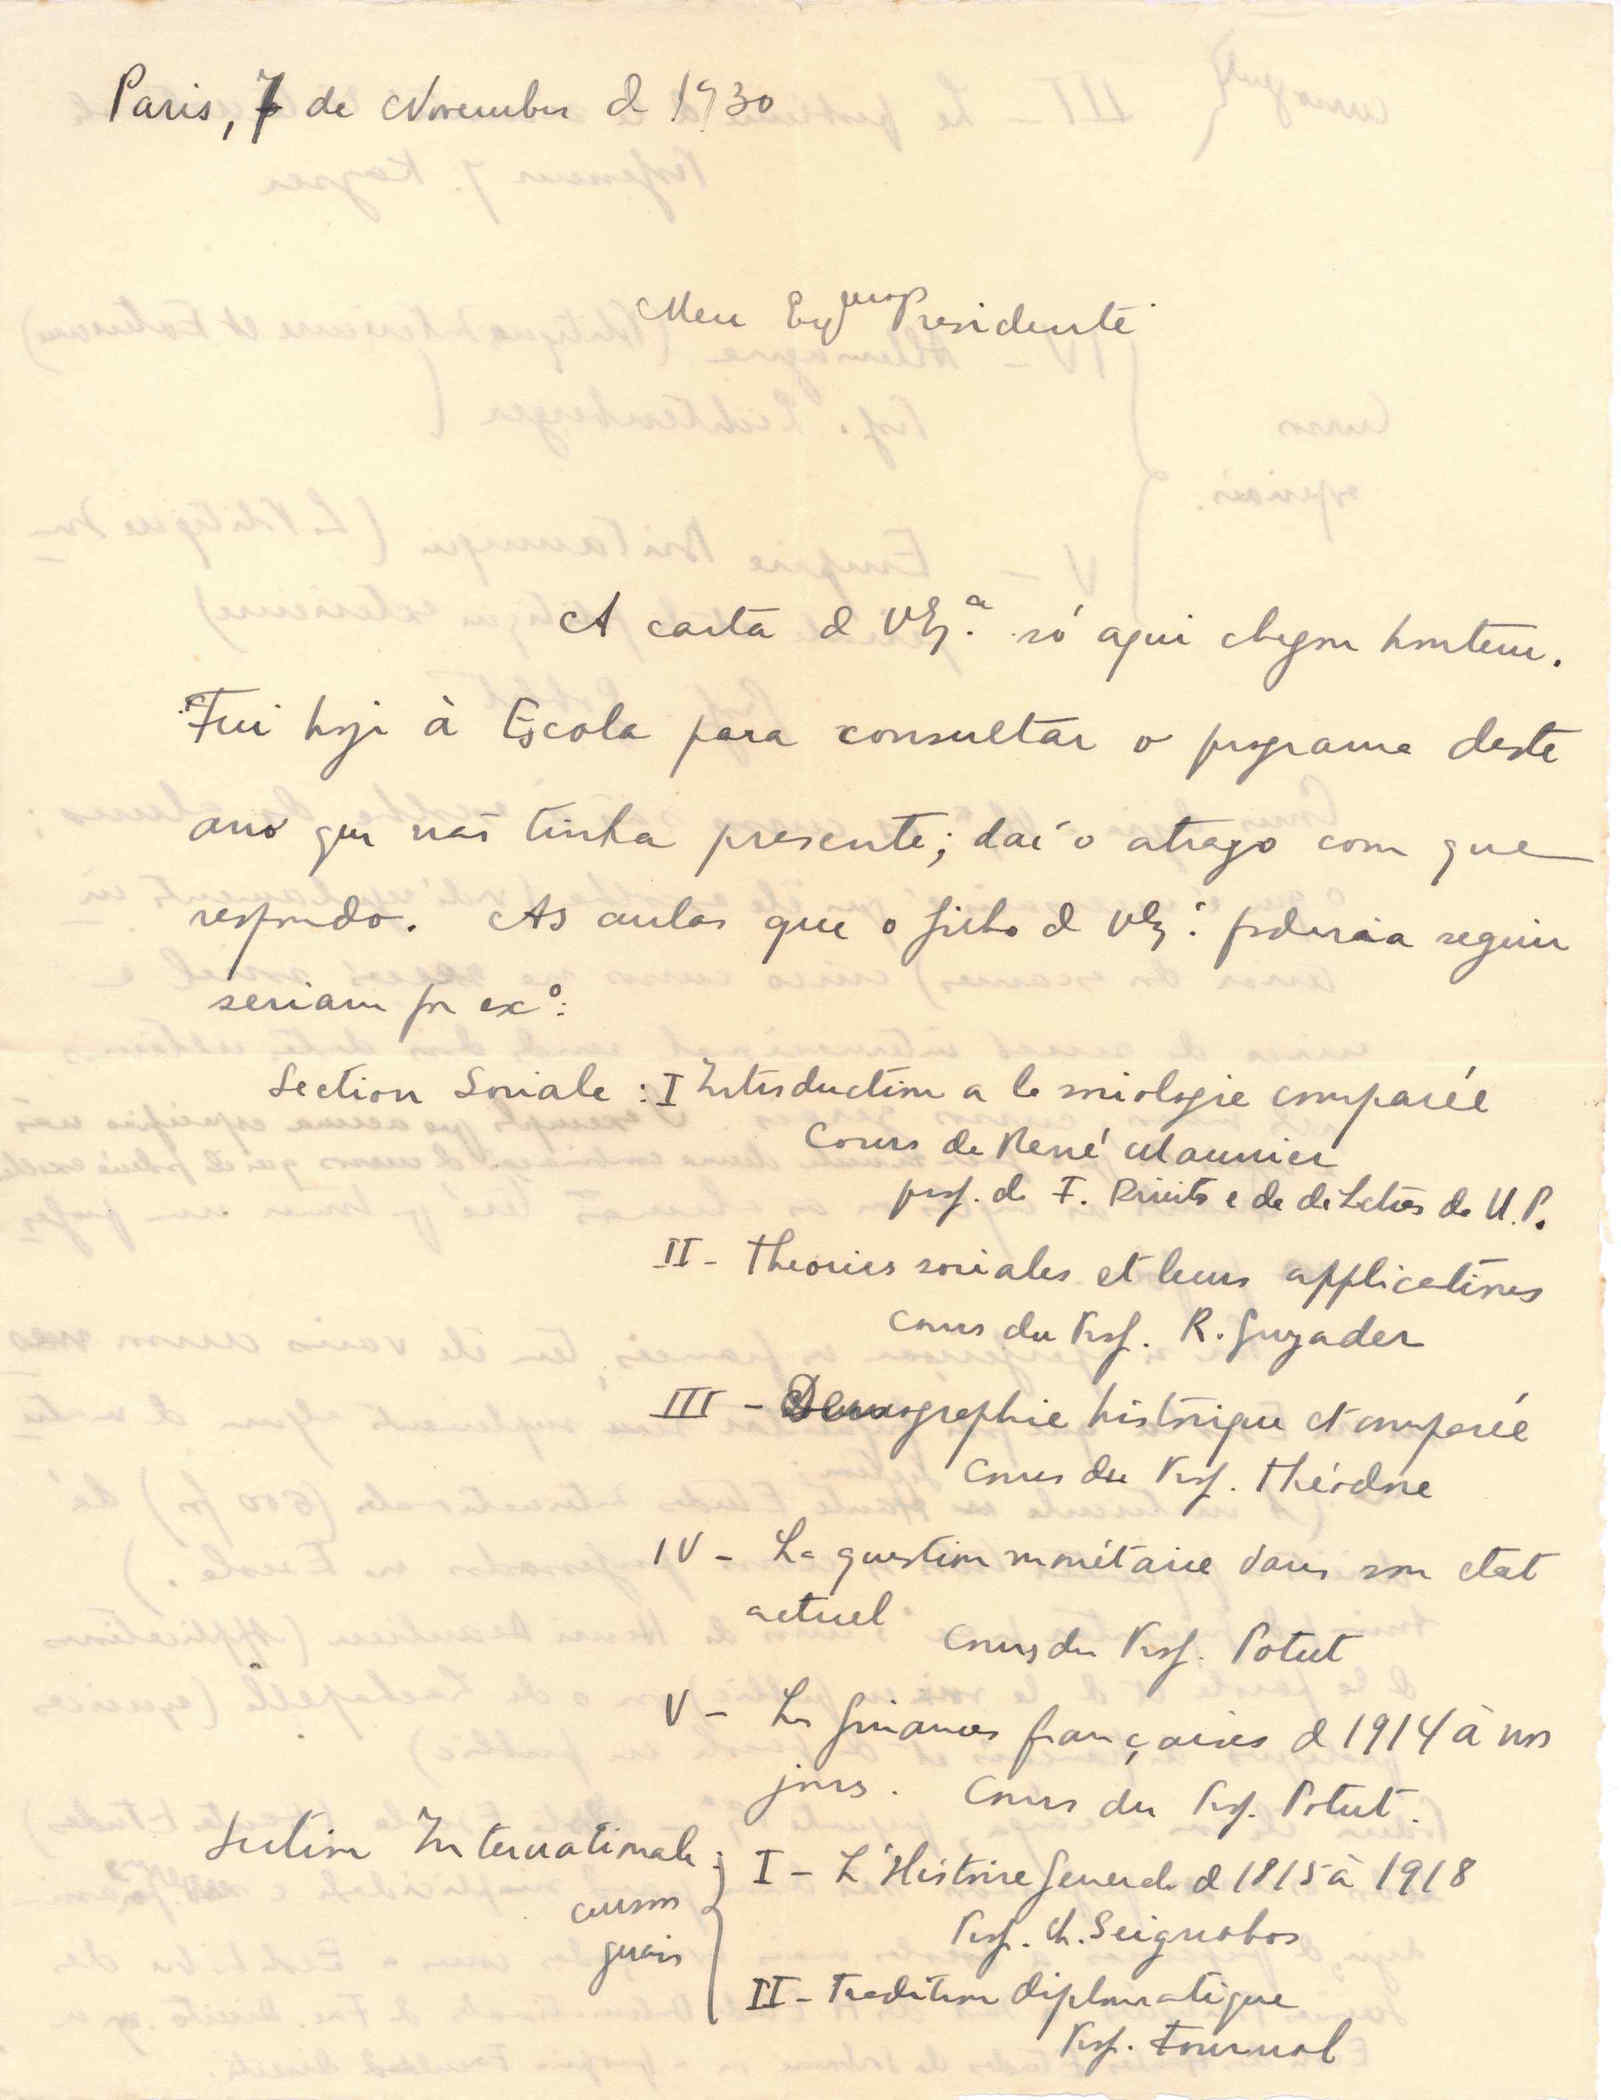 Paris, 7 de Novembro d 1930
Meu Exmo Presidente
A carta d VEx.a só aqui chegou hontem.
Fui hoje à Escola para consultar o programa deste
ano que não tinha presente; daí o atrazo com que
respondo. As aulas que o filho d VEx.a poderia seguir
seriam por exo:
Section Sociale : I Introduction a la sociologie comparée
Cours de René Maunier
prof. da F. Direito e da de Letras da U. P.
II - Theories sociales et leurs applications
Cours du Prof. R. Guyader
III - Demographie historique et comparée
Cours du Prof. Théodore
IV - La question monétaire dans son etat
actuel Cours du Prof. Potut
V - Les finances françaises d 1914 à nos
jours. Cours du Prof. Potut.
Section Internationale :
cursos
gerais
I - L'Histoire Generale d 1815 à 1918
Prof. Ch. Seignobos
II - Tradition diplomatique
Prof. Fournol